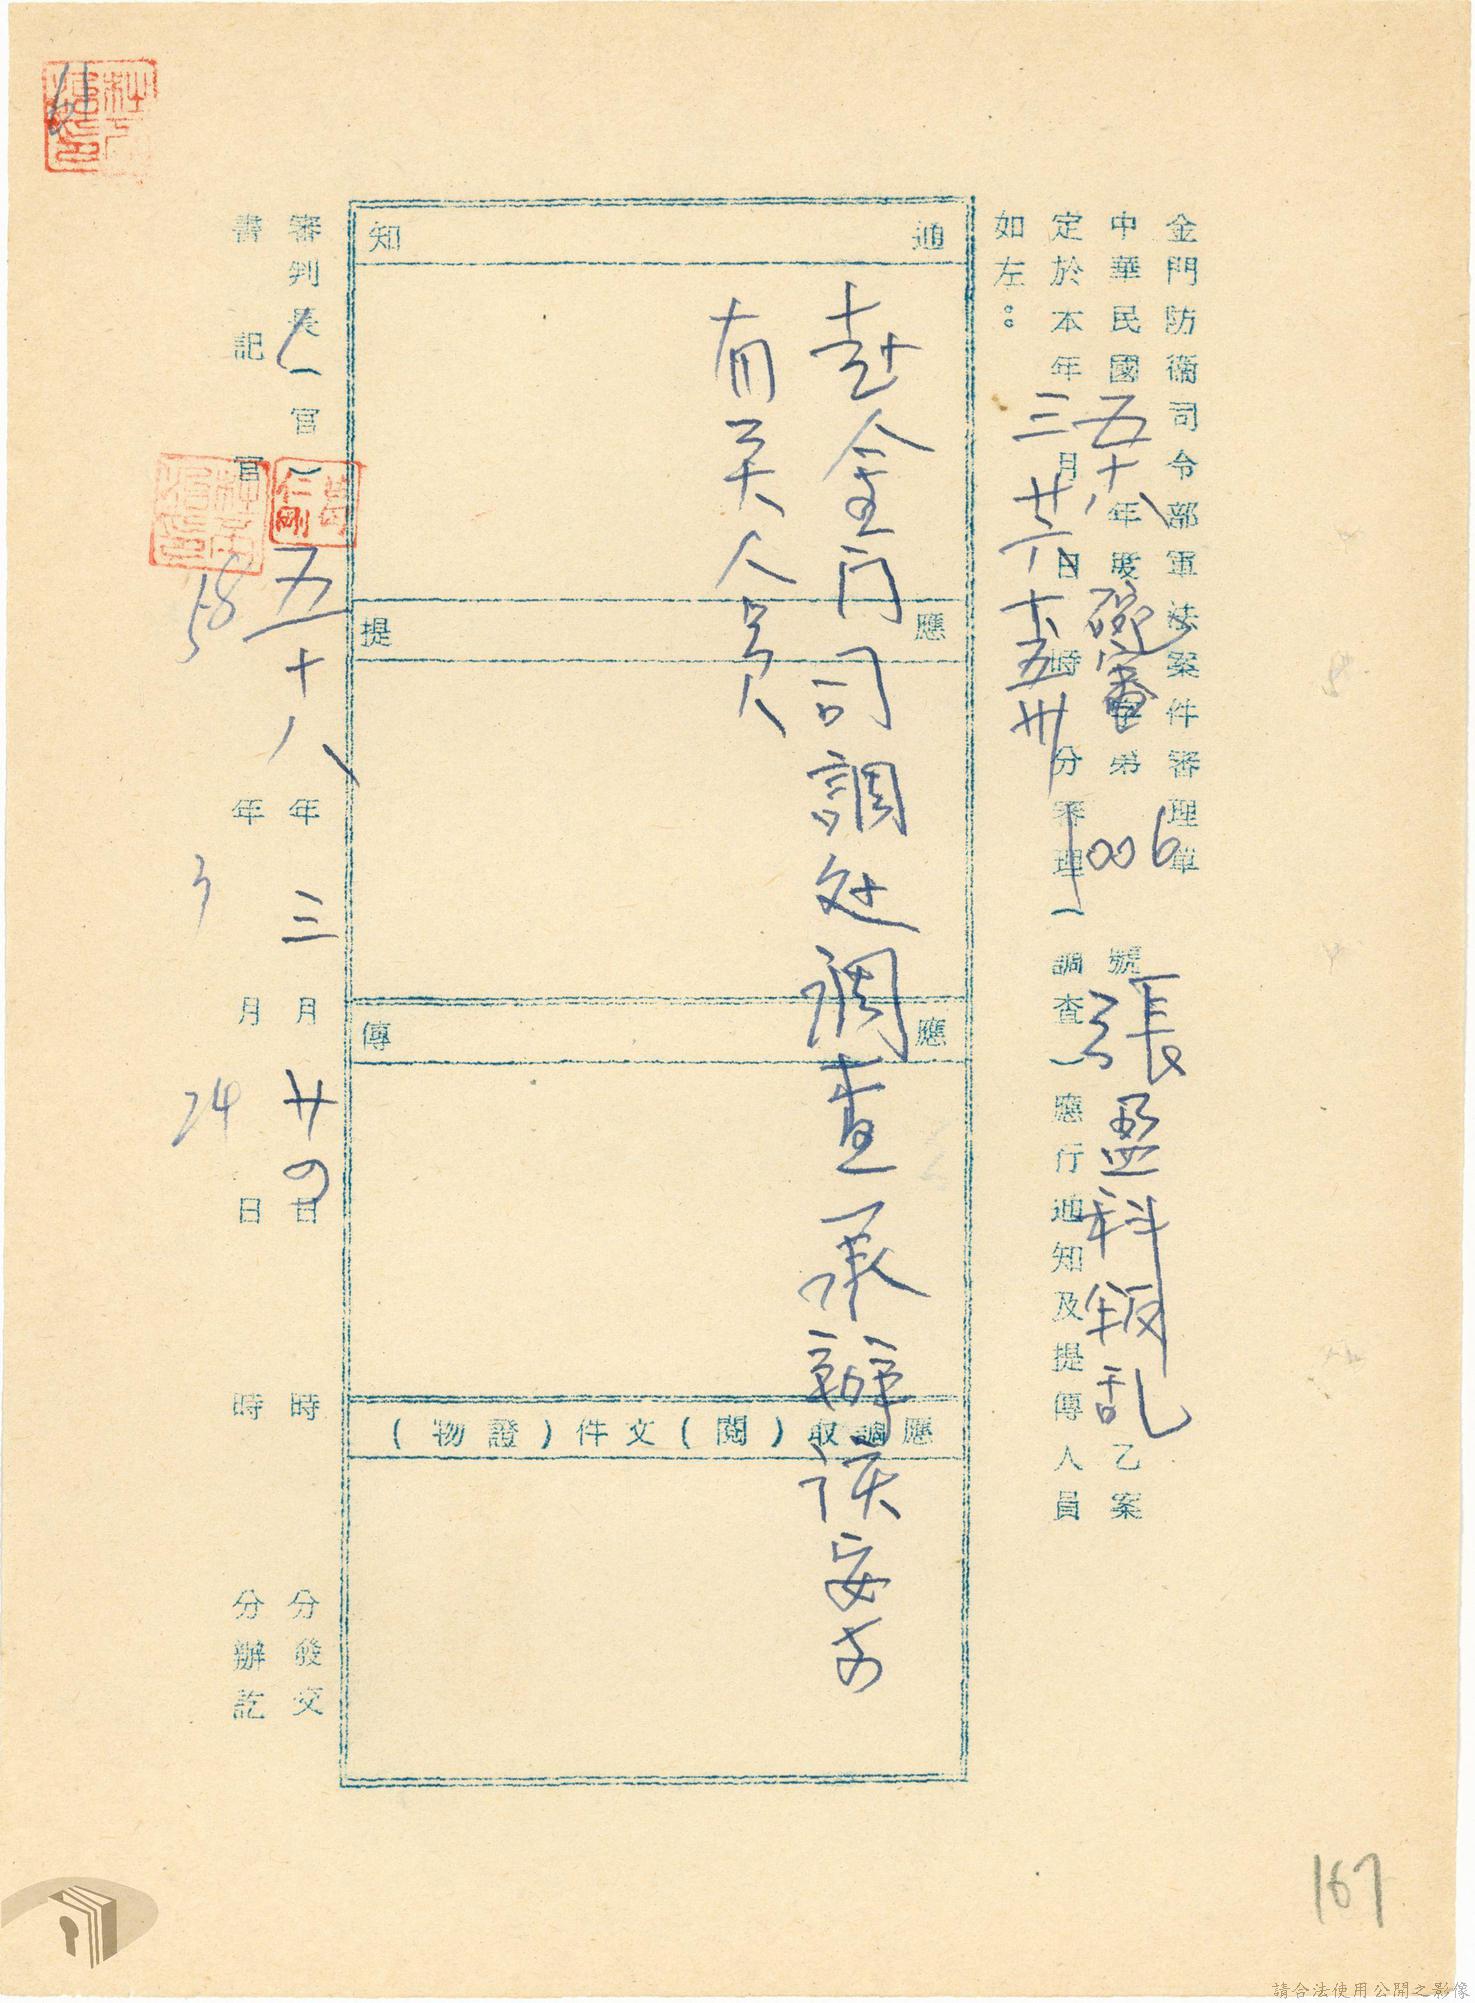 金門防衛司令部軍法案件審理單
中華民國五十八年度 審字第1006號張盈科叛乱乙案
定於本年三月廿六日十五時卅分審理(調查)應行通知及提傳人員
如左：
通知
赴金门司調处调查承辦该案之
有关人員
應提
應傳
應調取(閱)文件(證物)
審判長(官) 仁剛 五十八年三月廿四日 時 分發交
書記官 58年3月24日 時 分辦訖
167
請合法使用公開之影像